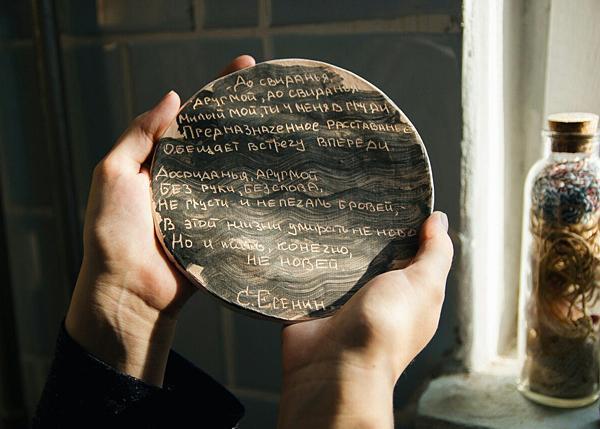 До свиданья,
друг мой, до свиданья
Милый мой, ты у меня в груди
Предназначенное расставанье
Обещает встречу впереди
До свиданья, друг мой
Без руки, без слова,
Не грусти и не печаль бровей,-
В этой жизни умирать не ново
Но и жить, конечно,
не новей
С. Есенин